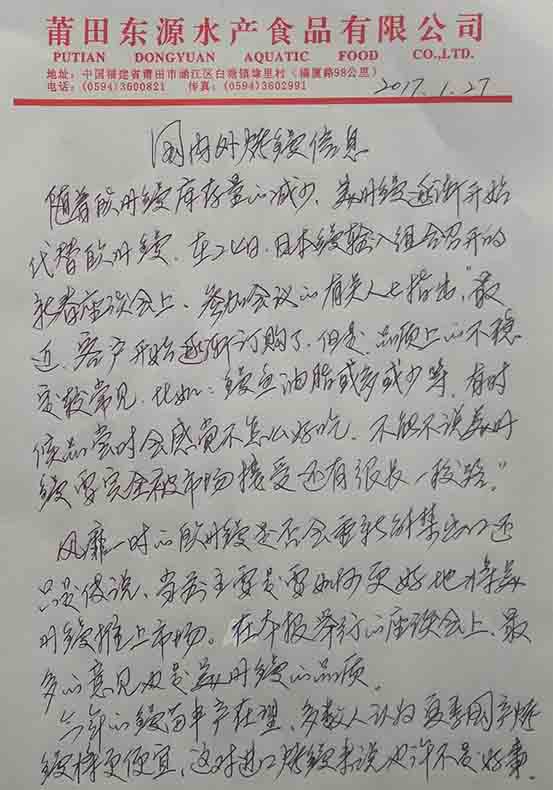 莆田东源水产食品有限公司
PUTIAN DONGYUAN AQUATIC FOOD CO.,LTD.
地址：中国福建省莆田市涵江区白塘镇埭里村（福厦路98公里）
电话：(0594)3600821 传真：(0594)3602991
2017.1.27
国内外烤鳗信息
随着欧洲鳗库存量的减少，美洲鳗逐渐开始
代替欧洲鳗。在24日，日本鳗输入组合召开的
新春座谈会上，参加会议的有关人士指出“最
近，客户开始逐渐订购了，但是，品质上的不稳
定较常见，比如：鳗鱼油脂或多或少等，有时
候品尝时会感觉不怎么好吃，不能不说美洲
鳗要完全被市场接受还有很长一段路。”
风靡一时的欧洲鳗是否会重新解禁出口还
只是传说，当前主要是要如何更好地将美
洲鳗推上市场。在本报举行的座谈会上，最
多的意见也是美洲鳗的品质。
今年的鳗苗丰产在望，多数人认为夏季国产烤
鳗将更便宜，这对进口烤鳗来说也许不是好事。